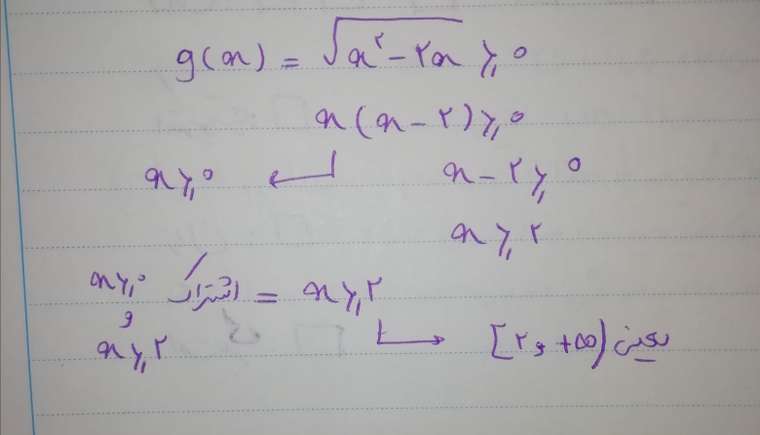 g(x) = √x² - ۲x ⩾ ۰
x(x - ۲) ⩾ ۰
x ⩾ ۰ ← x - ۲ ⩾ ۰
x ⩾ ۲
x ⩾ ۰ و x ⩾ ۲ اشتراک = x ⩾ ۲
→ [۲ و +∞) یعنی